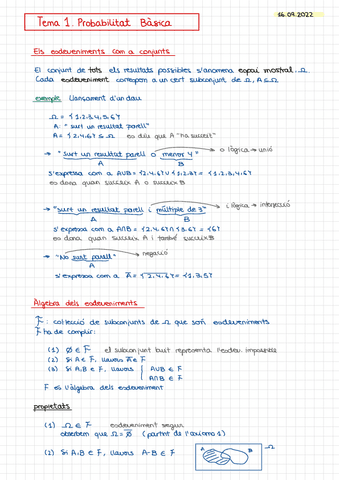 16.09.2022
Tema 1. Probabilitat Bàsica
Els esdeveniments com a conjunts
El conjunt de tots els resultats possibles s'anomena espai mostral. Ω
Cada esdeveniment correspon a un cert subconjunt de Ω, A⊆Ω
exemple Llançament d'un dau.
Ω = {1,2,3,4,5,6}
A: "surt un resultat parell"
A = {2,4,6} ⊆ Ω es diu que A "ha succeït"
→ "surt un resultat parell o menor 4" → o lògica → unió
A B
s'expressa com a A∪B = {2,4,6} ∪ {1,2,3} = {1,2,3,4,6}
es dona quan succeeix A o succeeix B
→ "surt un resultat parell i múltiple de 3" → i lògica → intersecció
A B
s'expressa com a A∩B = {2,4,6} ∩ {3,6} = {6}
es dona quan succeeix A i també succeeix B
→ "No surt parell" → negació
A
s'expressa com a A̅ = {2,4,6} = {1,3,5}
Àlgebra dels esdeveniments
F: col·lecció de subconjunts de Ω que són esdeveniments
F ha de complir:
(1) ∅ ∈ F el subconjunt buit representa l'esdev. impossible
(2) Si A ∈ F, llavors A̅ ∈ F
(3) Si A,B ∈ F, llavors | A∪B ∈ F
| A∩B ∈ F
F és l'àlgebra dels esdeveniments
propietats
(1) Ω ∈ F esdeveniment segur
observem que Ω = ∅̅ (partint de l'axioma 1)
(2) Si A,B ∈ F, llavors A-B ∈ F
A B Ω